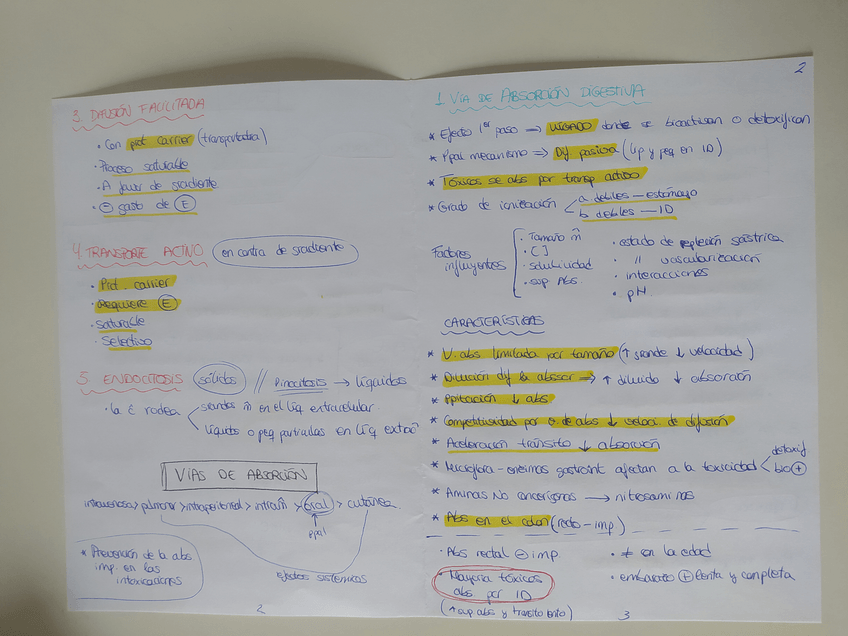 3. DIFUSIÓN FACILITADA
· Con prot carrier (transportadora)
· Proceso saturable
· A favor de gradiente
· ⊖ gasto de Ⓔ
4 TRANSPORTE ACTIVO en contra de gradiente
· Prot. carrier
· Requiere Ⓔ
· Saturable
· Selectivo
5 ENDOCITOSIS sólidos // Pinocitosis → líquidos
· la č rodea
grandes m̂ en el líq extracelular.
líquidos o peq partículas en líq
VÍAS DE ABSORCIÓN
intravenosa > pulmonar > intraperitoneal > intram > oral > cutánea.
↑
ppal
* Prevención de la abs
imp. en las
intoxicaciones
Efectos sistémicos
2
2
1 VÍA DE ABSORCIÓN DIGESTIVA
* Efecto 1er paso ⇒ HÍGADO donde se bioactivan o detoxifican
* Ppal mecanismo ⇒ Dif pasiva (lip y peq en ID)
* Tóxicos se abs por transp activo
* Grado de ionización
a. debiles — estómago
b debiles — ID
Factores
influyentes
· Tamaño m̂
· [ ]
· solubilidad
· sup Abs.
· estado de repleción gástrica
· // vascularización
· interacciones
· pH
CARACTERÍSTICAS
* V. abs limitada por tamaño (↑ grande ↓ velocidad)
* Dilución dif la absor ⇒ ↑ diluido ↓ absorción
* Ppitación ↓ abs
* Competitividad por de abs ↓ veloci. de difusión
* Aceleración tránsito ↓ absorción
* Microflora - enzimas gastroint afectan a la toxicidad
detoxif
bio ⊕
* Aminas No cancerígenas → nitrosaminas
* Abs en el colon (recto - imp)
· Abs rectal ⊖ imp.
· Mayoría tóxicos
abs por ID
(↑ sup abs y tránsito lento)
· ≠ con la edad
· embarazo ⊕ lenta y completa
3